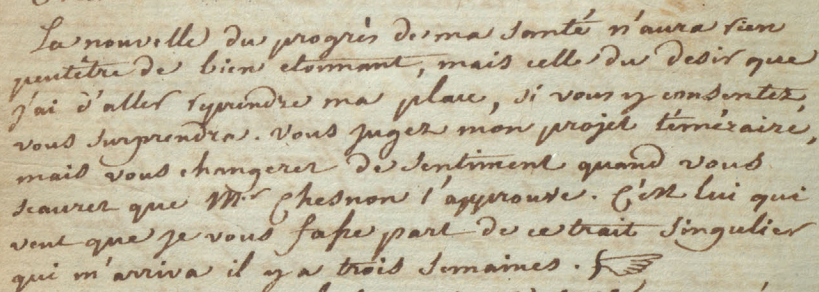 La nouvelle du progrès de ma santé n'aura rien
peutêtre de bien etonnant, mais celle du desir que
j'ai d'aller reprendre ma place, si vous y consentez,
vous surprendra. Vous jugez mon projet téméraire,
mais vous changerez de sentiment quand vous
scaurez que Mr. Chesnon l'approuve. C'est lui qui
veut que je vous fasse part de ce trait singulier
qui m'arriva il y a trois semaines.